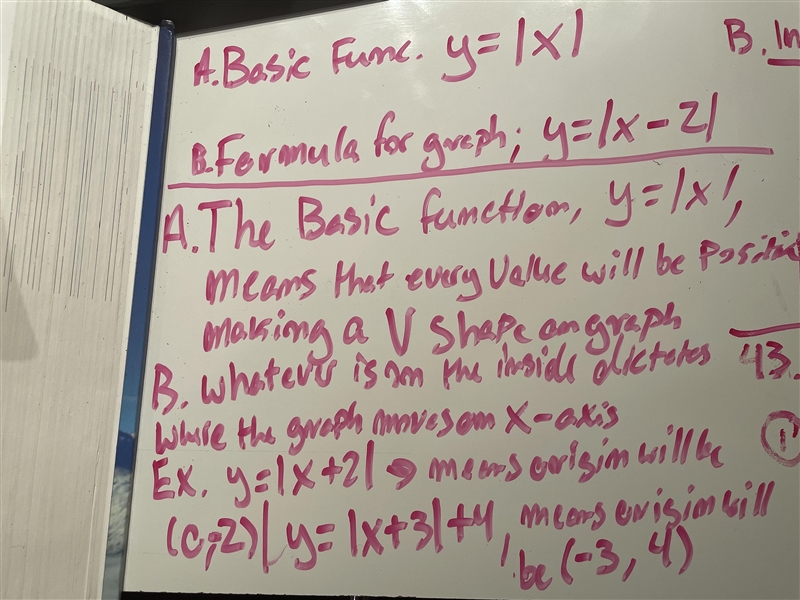 A. Basic Func. y=|x|
B. In
B. Formula for graph; y=|x-2|
A. The Basic function, y=|x|,
means that every value will be positi
making a V shape on graph
B. whatever is on the inside dictates
where the graph moves on x-axis
43.
1
Ex. y=|x+2| → means origin will be
(0,-2)| y=|x+3|+4, means origin will
be (-3, 4)